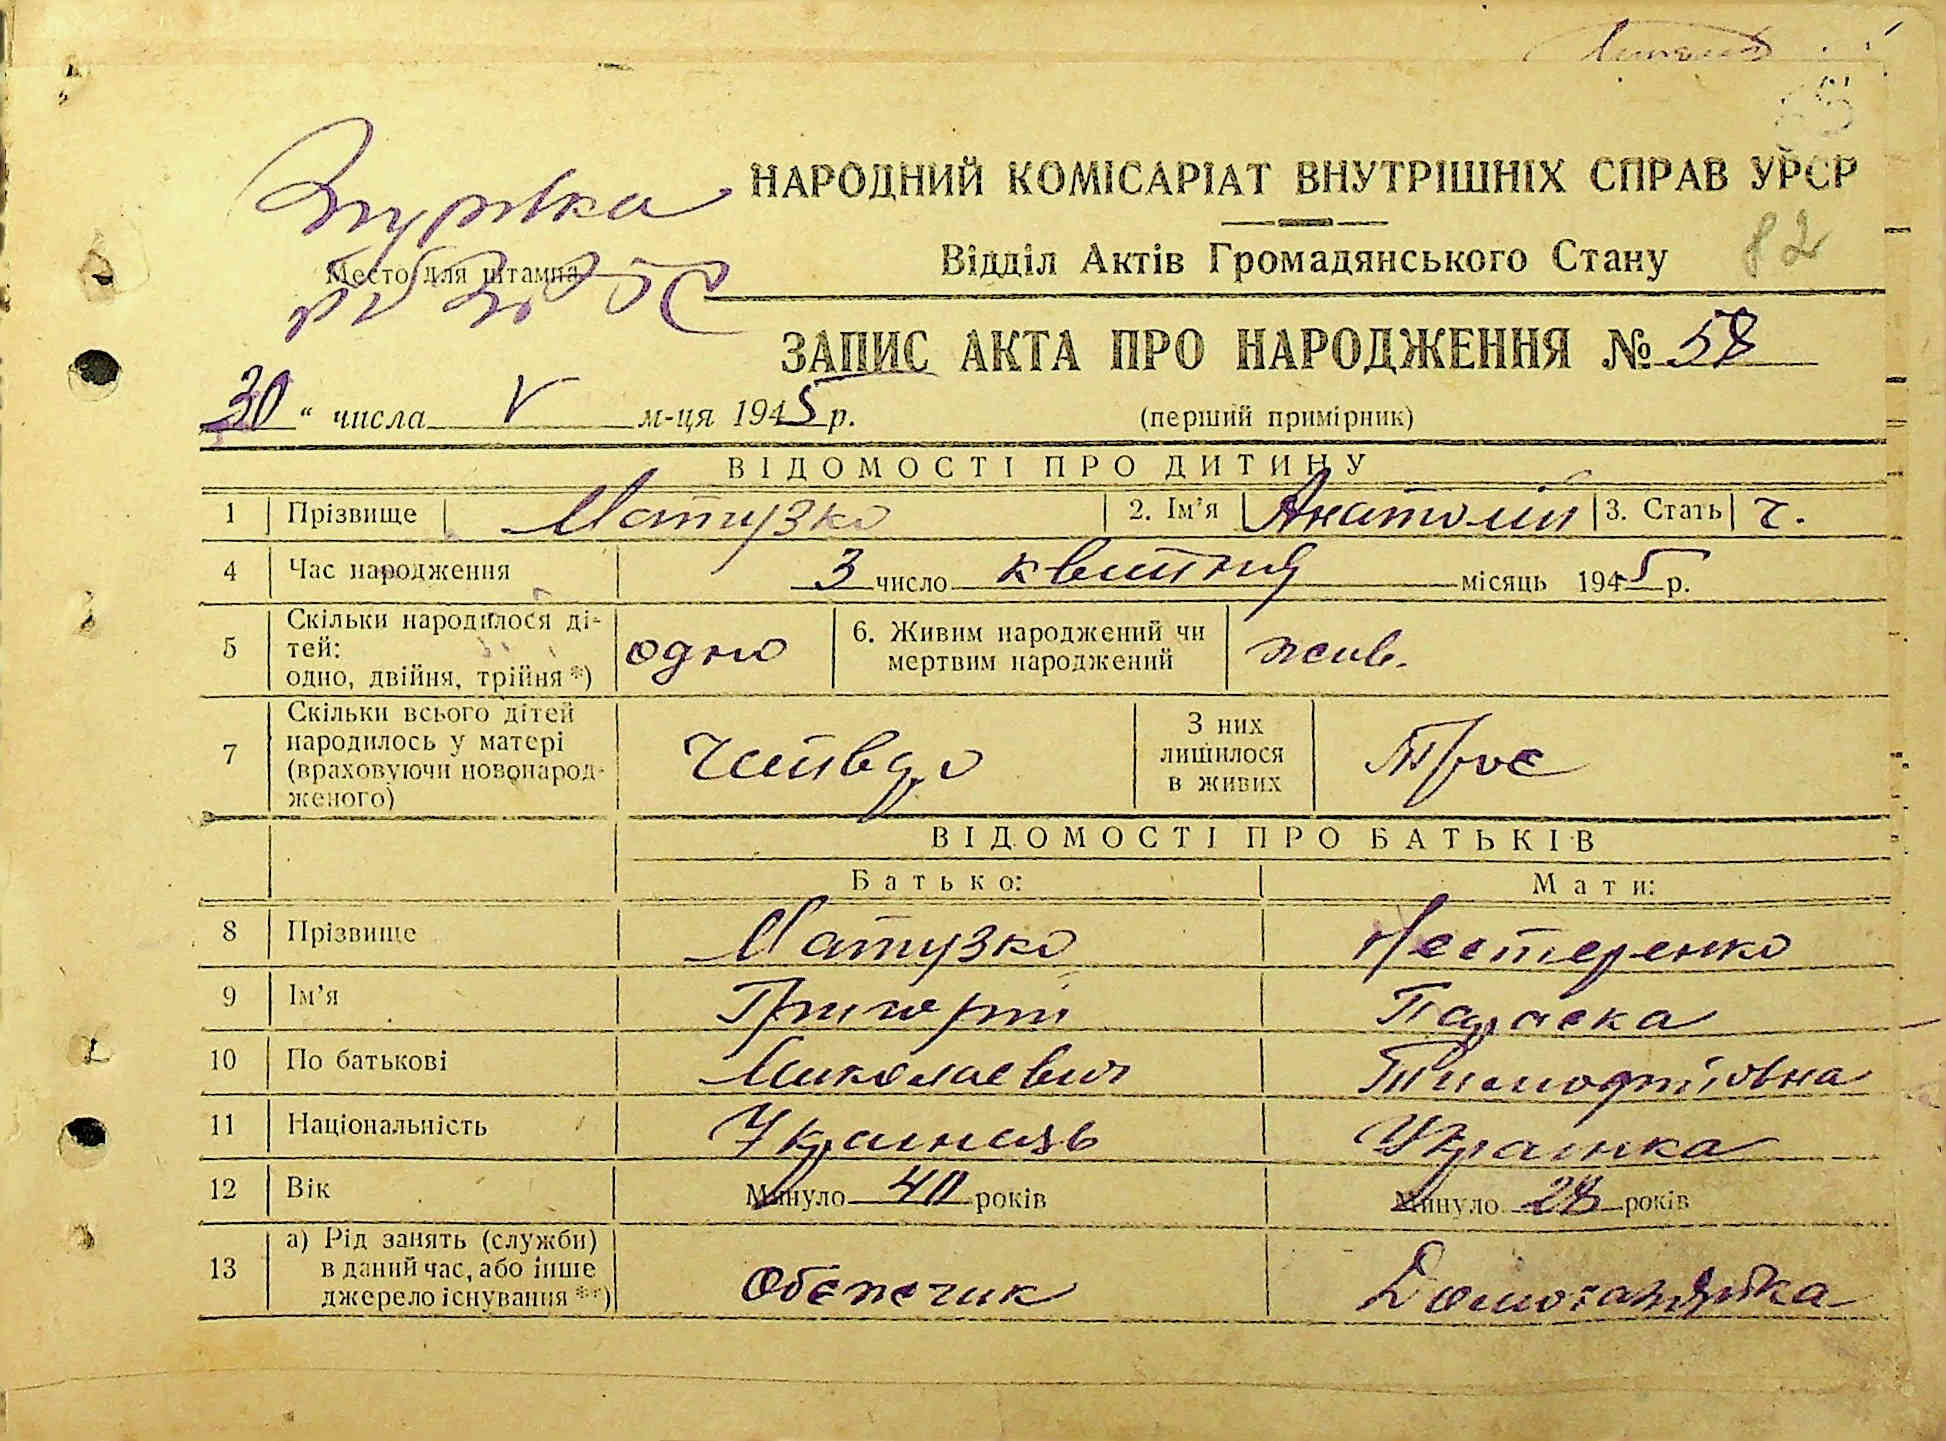 82
Згурівка
НАРОДНИЙ КОМІСАРІАТ ВНУТРІШНІХ СПРАВ УРСР
Відділ Актів Громадянського Стану
Место для штампа
рб ЗАГС
ЗАПИС АКТА ПРО НАРОДЖЕННЯ № 58
30 “ числа V м-ця 1945 р. (перший примірник)
ВІДОМОСТІ ПРО ДИТИНУ
1 Прізвище Матузко 2. Ім'я Анатолій 3. Стать ч.
4 Час народження 3 число квітня місяць 1945 р.
5 Скільки народилося ді-
тей:
одно, двійня, трійня *) одно 6. Живим народжений чи
мертвим народжений жив.
7 Скільки всього дітей
народилось у матері
(враховуючи новонарод-
женого) Четверо З них
лишилося
в живих Троє
ВІДОМОСТІ ПРО БАТЬКІВ
Батько: Мати:
8 Прізвище Матузко Нестеренко
9 Ім'я Григорій Параска
10 По батькові Миколаевич Тимофіївна
11 Національність Українець Українка
12 Вік Минуло 40 років Минуло 28 років
13 а) Рід занять (служби)
в даний час, або інше
джерело існування **) Обєжчик Домогаярка